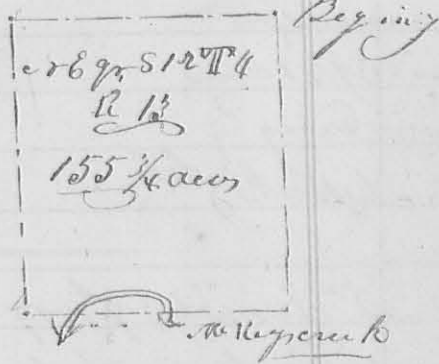 Beginy
N E qr S 12 T 4
R 13
155 3/4 acres